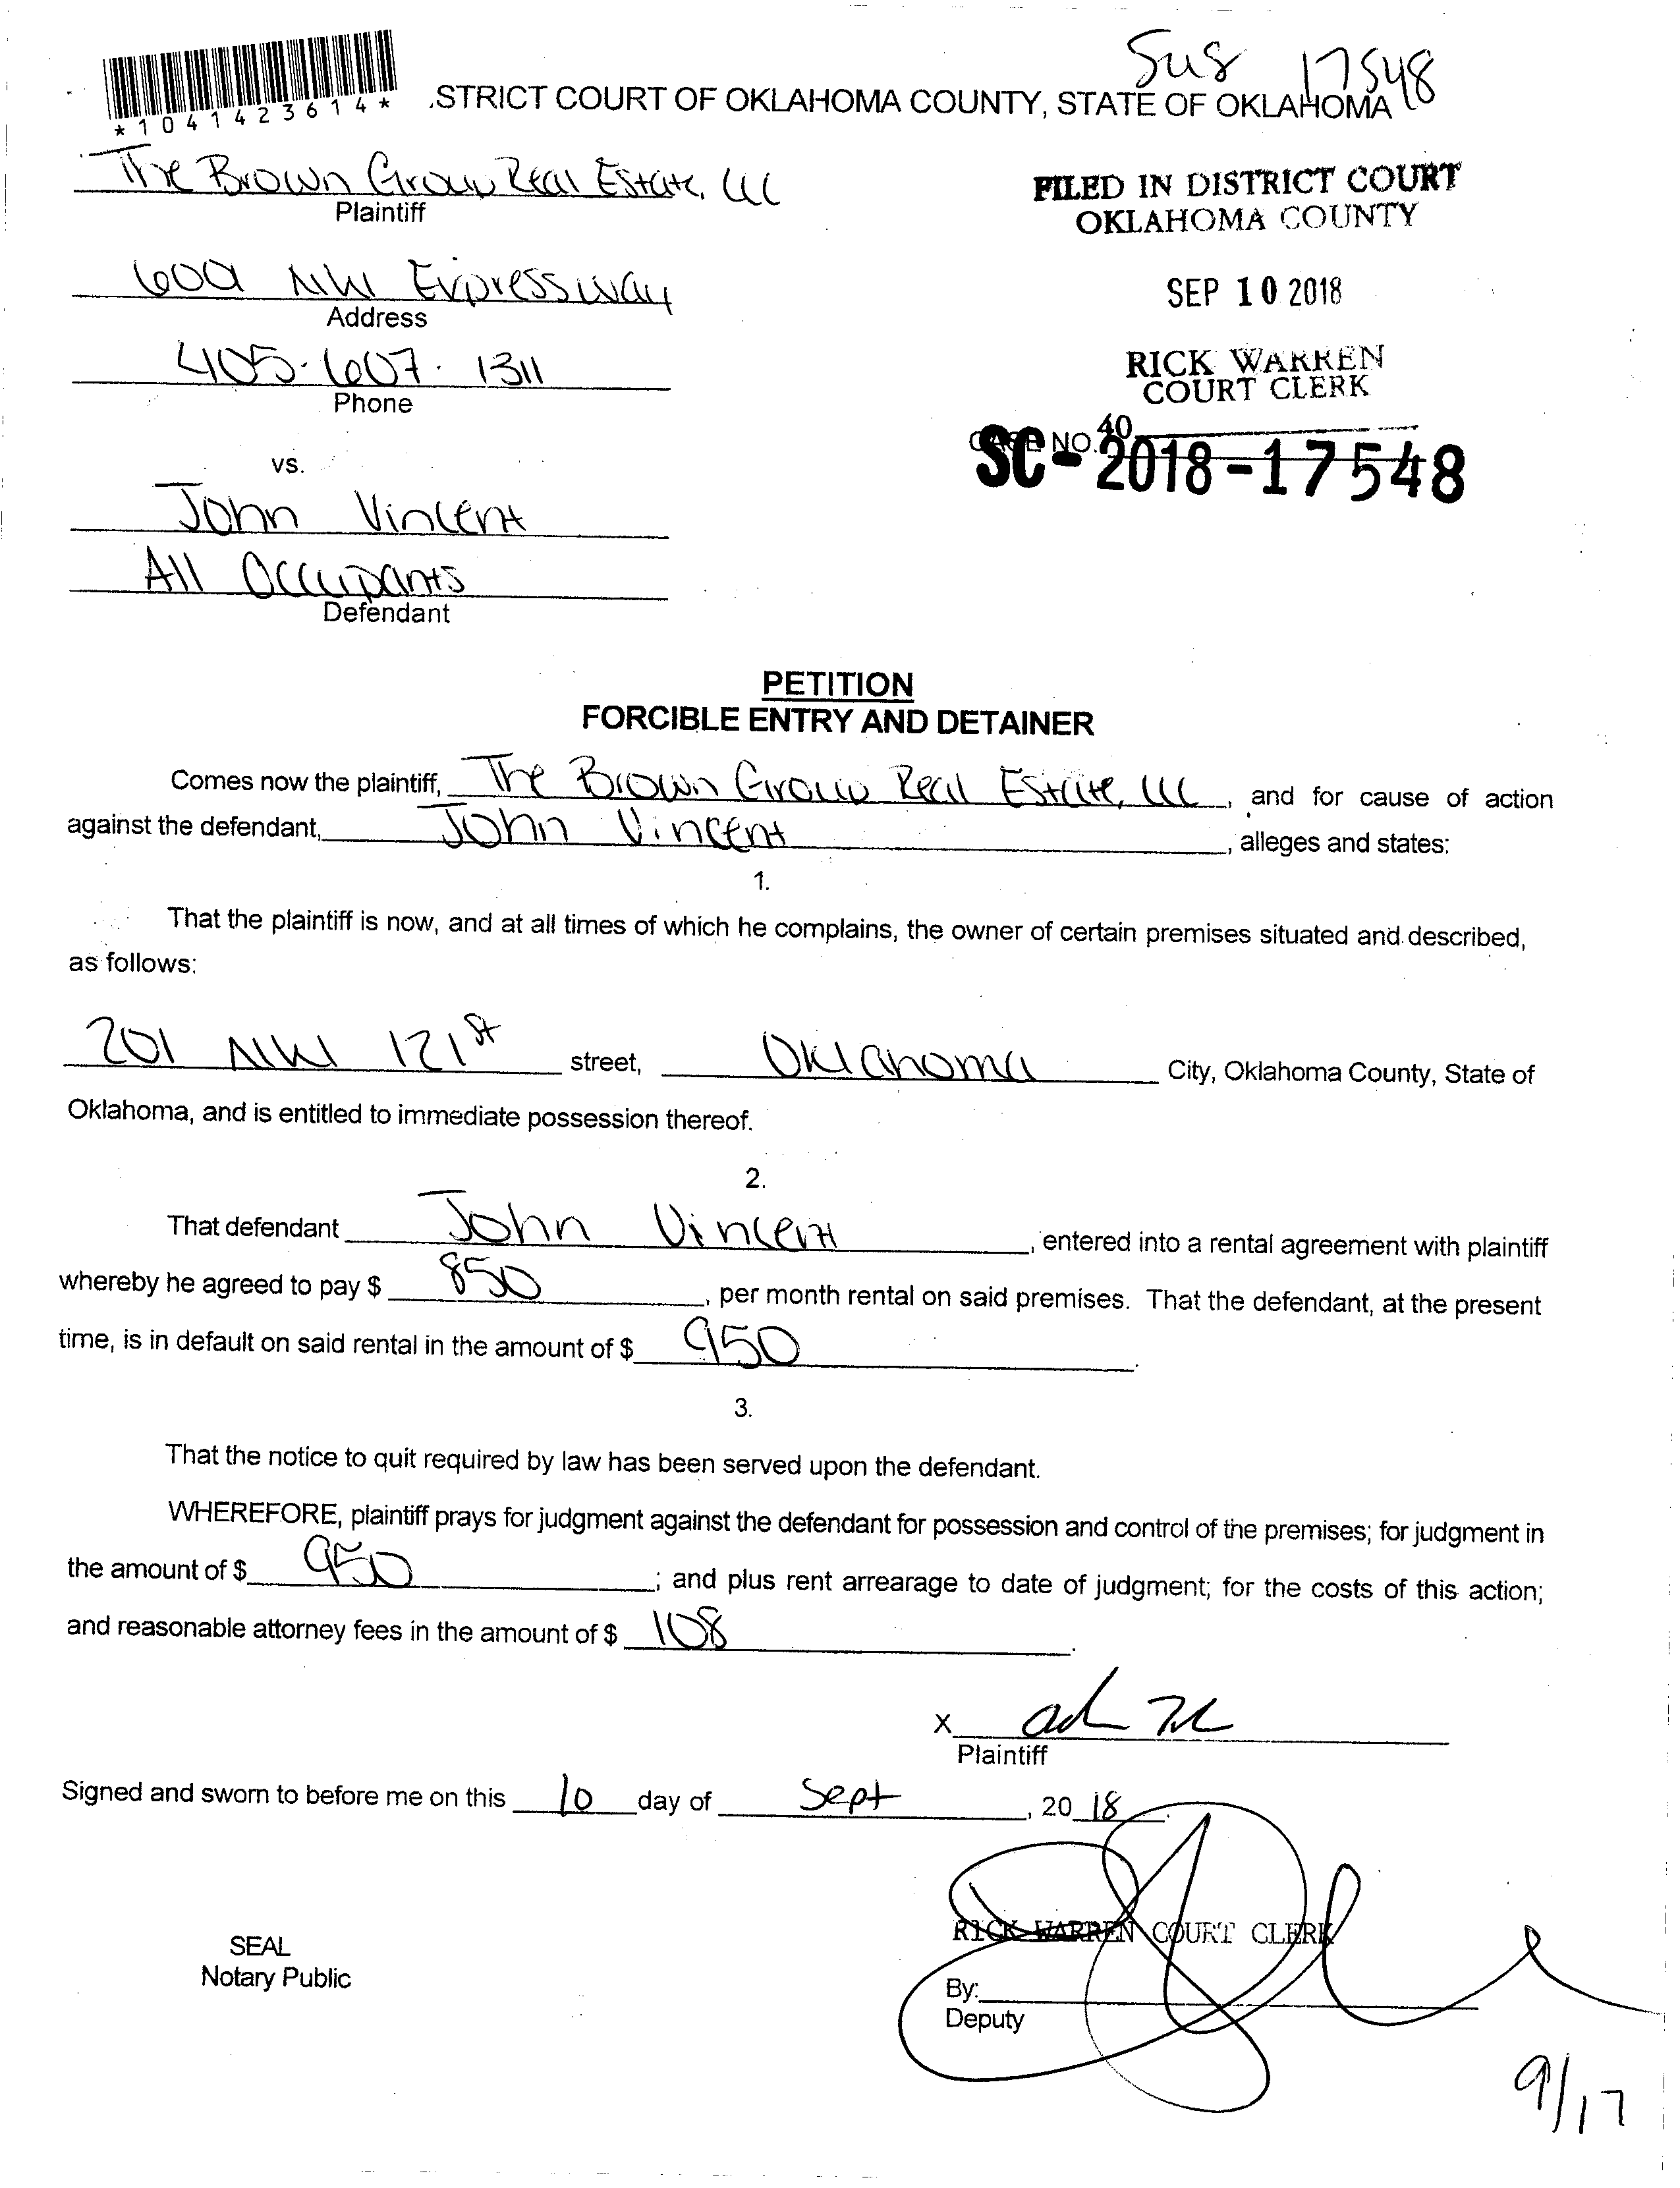 Sus 17548
*1041423614*
.STRICT COURT OF OKLAHOMA COUNTY, STATE OF OKLAHOMA
The Brown Group Real Estate, LLC
Plaintiff
FILED IN DISTRICT COURT
OKLAHOMA COUNTY
NW Expressway
Address
SEP 10 2018
405-607-1311
Phone
RICK WARREN
COURT CLERK
40
CASE NO.
SC-2018-17548
vs.
John Vincent
All Occupants
Defendant
PETITION
FORCIBLE ENTRY AND DETAINER
Comes now the plaintiff, The Brown Group Real Estate, LLC, and for cause of action
against the defendant, John Vincent, alleges and states:
1.
That the plaintiff is now, and at all times of which he complains, the owner of certain premises situated and described,
as follows:
201 NW 121st street, Oklahoma City, Oklahoma County, State of
Oklahoma, and is entitled to immediate possession thereof.
2.
That defendant John Vincent, entered into a rental agreement with plaintiff
whereby he agreed to pay $ 850, per month rental on said premises. That the defendant, at the present
time, is in default on said rental in the amount of $ 950.
3.
That the notice to quit required by law has been served upon the defendant.
WHEREFORE, plaintiff prays for judgment against the defendant for possession and control of the premises; for judgment in
the amount of $ 950; and plus rent arrearage to date of judgment; for the costs of this action;
and reasonable attorney fees in the amount of $ 108.
X
Plaintiff
Signed and sworn to before me on this 10 day of Sept, 20 18.
RICK WARREN COURT CLERK
SEAL
Notary Public
By:
Deputy
9/17